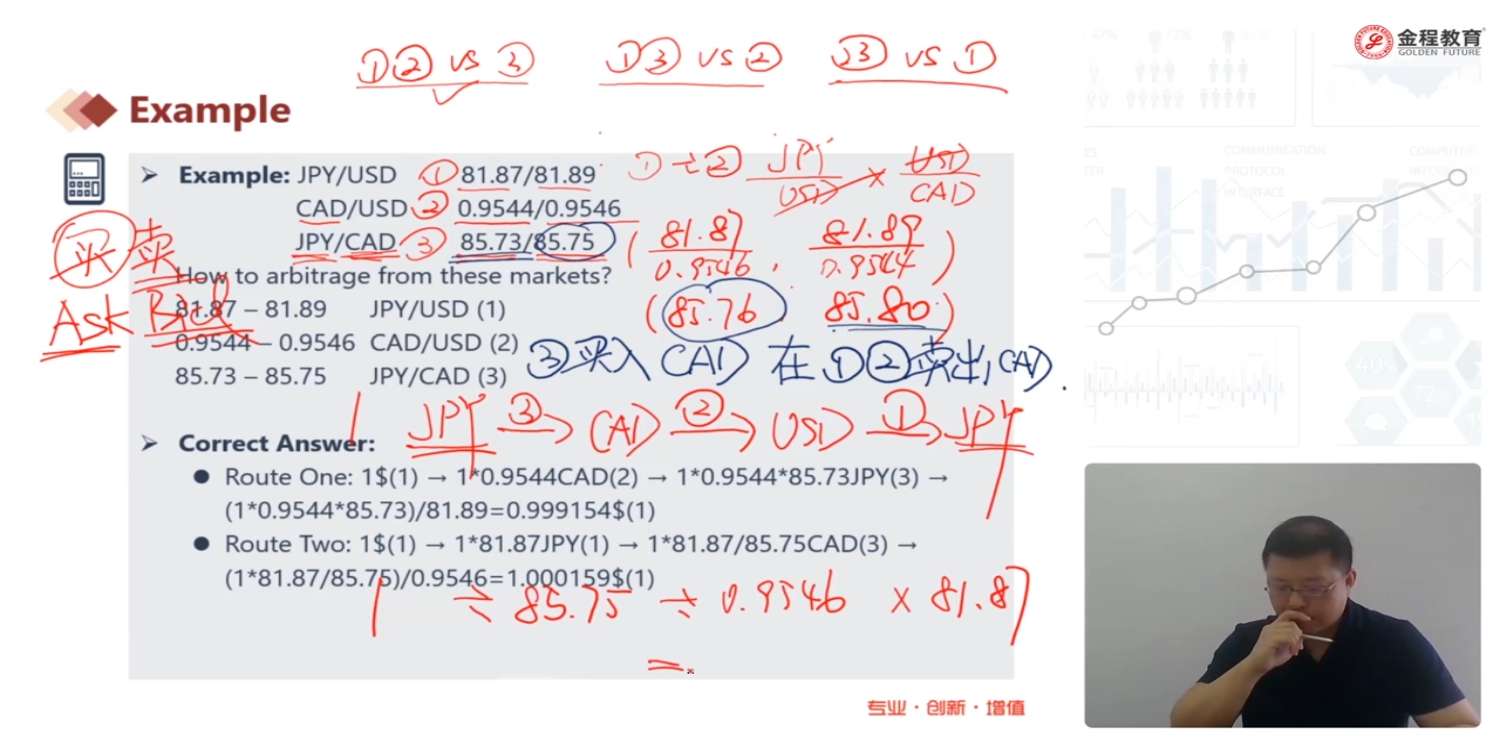 ①② vs ③ ①③ vs ② ②③ vs ①
金程教育
GOLDEN FUTURE
Example
Example: JPY/USD ① 81.87/81.89
CAD/USD ② 0.9544/0.9546
JPY/CAD ③ 85.73/85.75
①÷② JPY/USD × USD/CAD
(81.87/0.9546, 81.89/0.9544)
(85.76 85.80)
买 卖
Ask Bid
How to arbitrage from these markets?
81.87 – 81.89 JPY/USD (1)
0.9544 – 0.9546 CAD/USD (2)
85.73 – 85.75 JPY/CAD (3)
③买入CAD 在①②卖出CAD.
1 JPY ③→ CAD ②→ USD ①→ JPY
Correct Answer:
Route One: 1$(1) → 1*0.9544CAD(2) → 1*0.9544*85.73JPY(3) →
(1*0.9544*85.73)/81.89=0.999154$(1)
Route Two: 1$(1) → 1*81.87JPY(1) → 1*81.87/85.75CAD(3) →
(1*81.87/85.75)/0.9546=1.000159$(1)
1 ÷ 85.75 ÷ 0.9546 × 81.87
=
专业·创新·增值